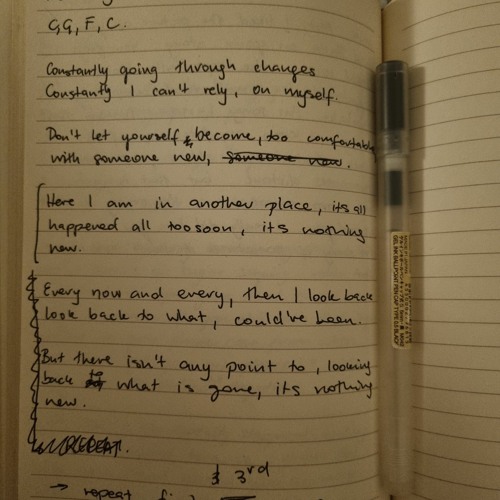 C, G, F, C.
Constantly going through changes
Constanty I can't rely, on myself.
Don't let yourself become, too comfortable
with someone new, someone new.
Here I am in another place, its all
happened all too soon, its nothing
new.
Every now and every, then I look back
look back to what, could've been.
But there isn't any point to, looking
back to what is gone, its nothing
new.
REPEAT.
3rd
→ repeat